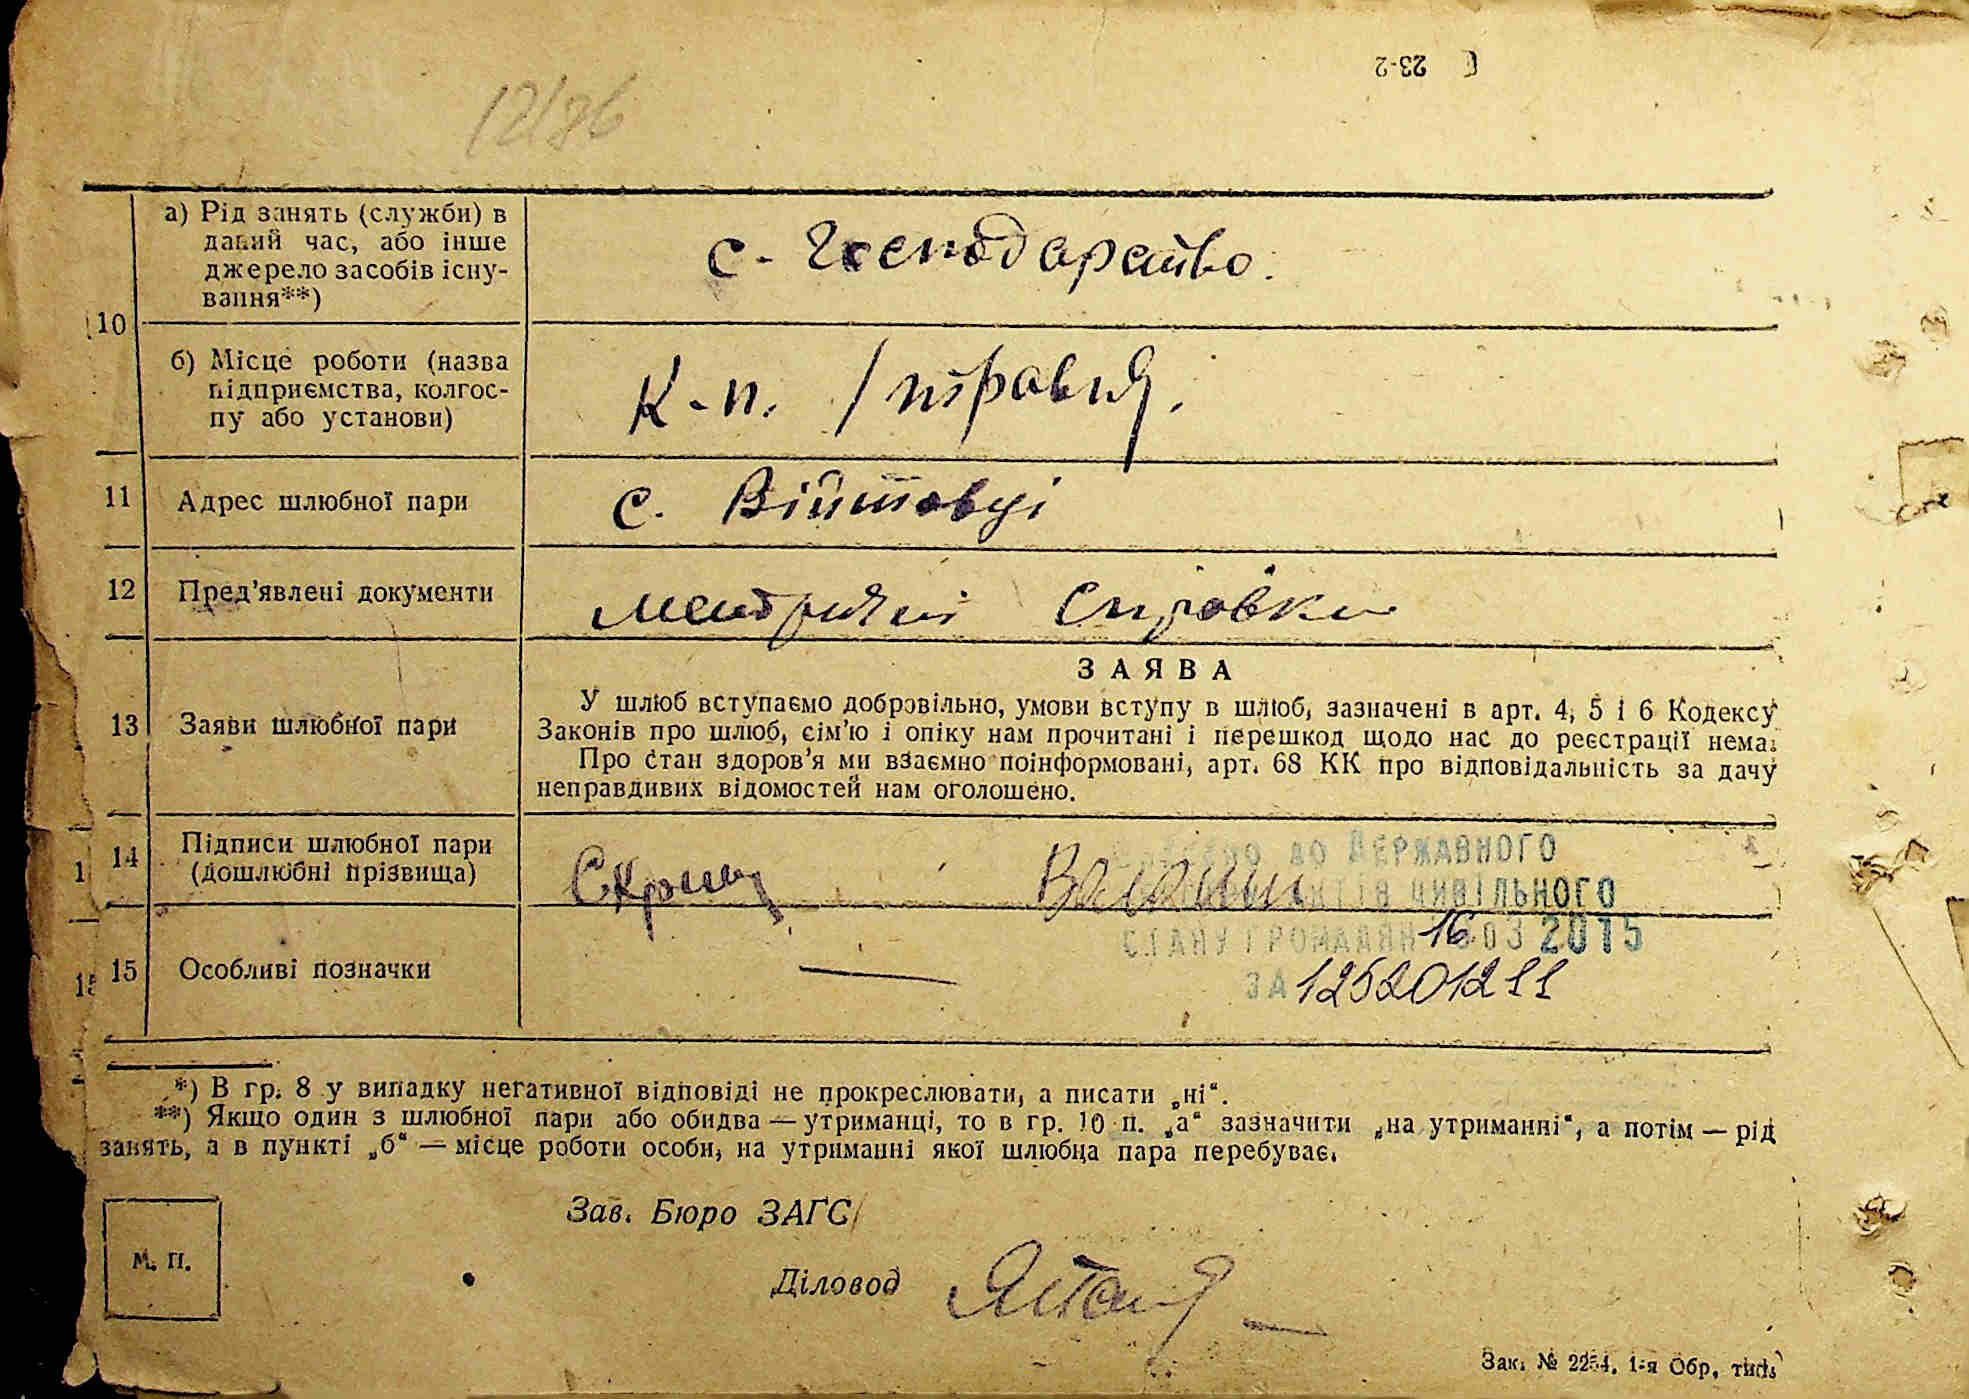 23-2
12/36
а) Рід занять (служби) в
даний час, або інше
джерело засобів існу-
вання**)
с. Господарство.
10
б) Місце роботи (назва
підприємства, колгос-
пу або установи)
к-п. 1 травня.
11 Адрес шлюбної пари
с. Війтовці
12 Пред'явлені документи
метричні справки
13 Заяви шлюбної пари
ЗАЯВА
У шлюб вступаємо добровільно, умови вступу в шлюб, зазначені в арт. 4, 5 і 6 Кодексу
Законів про шлюб, сім'ю і опіку нам прочитані і перешкод щодо нас до реєстрації нема.
Про стан здоров'я ми взаємно поінформовані, арт. 68 КК про відповідальність за дачу
неправдивих відомостей нам оголошено.
1 14 Підписи шлюбної пари
(дошлюбні прізвища)
до Державного
цивільного
стану громадян 16 03 2015
за 125201211
15 15 Особливі позначки
—
*) В гр. 8 у випадку негативної відповіді не прокреслювати, а писати „ні“.
**) Якщо один з шлюбної пари або обидва — утриманці, то в гр. 10 п. „а“ зазначити „на утриманні“, а потім — рід
занять, а в пункті „б“ — місце роботи особи, на утриманні якої шлюбна пара перебуває.
Зав. Бюро ЗАГС
М. П.
Діловод
Зак. № 2254. 1-я Обр. тип.